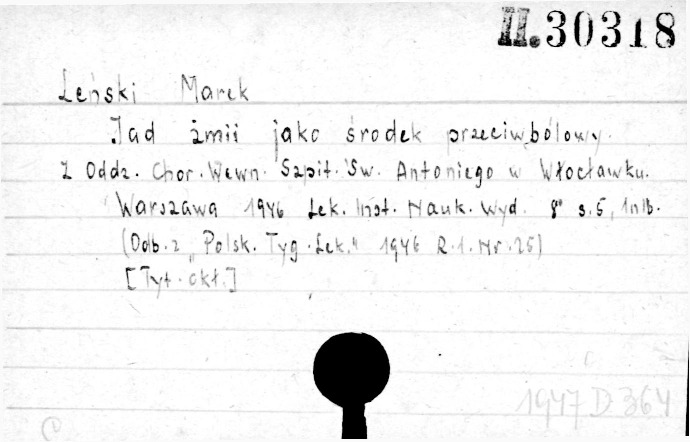 II.30318
Leński Marek
Jad żmii jako środek przeciwbólowy.
Z Oddz. Chor. Wewn. Szpit. Św. Antoniego w Włocławku.
Warszawa 1946 Lek. Inst. Nauk. Wyd. 8° s.5, 1nlb.
(Odb. z „Polsk. Tyg. Lek." 1946 R.1. Nr. 25)
[Tyt. okł.]
1947 D 364
C